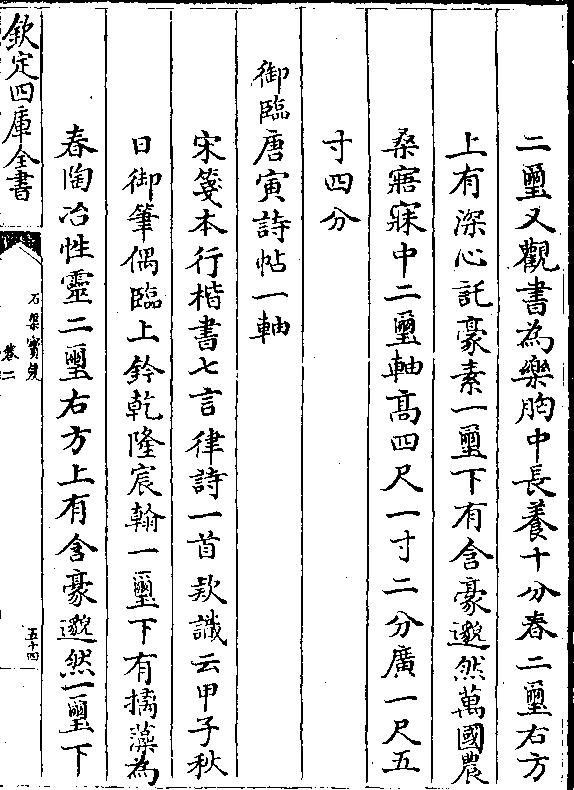 二璽又觀書為樂胸中長養十分春二璽右方
上有深心託豪素一璽下有含豪邈然萬國農
桑寤寐中二璽軸高四尺一寸二分廣一尺五
寸四分
御臨唐寅詩帖一軸
宋箋本行楷書七言律詩一首款識云甲子秋
日御筆偶臨上鈐乾隆宸翰一璽下有摛藻為
春陶冶性靈二璽右方上有含豪邈然一璽下
欽定四庫全書
石渠寳笈
卷二
五十四